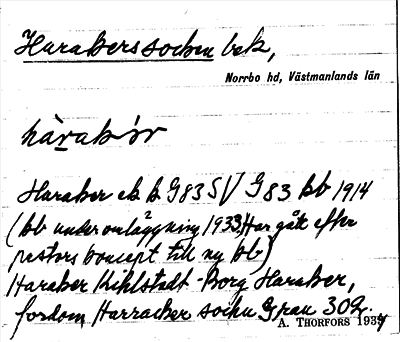 Harakers socken bek,
Norrbo hd, Västmanlands län
hàrakər
Haraker ek k G83SV G83 kb 1914
(kb under omläggning 1933. Har gått efter
pastors koncept till ny kb)
Haraker Kihlstedt-Borg Haraker,
fordom Harracker sochn Grau 302.
A. THORFORS 1934